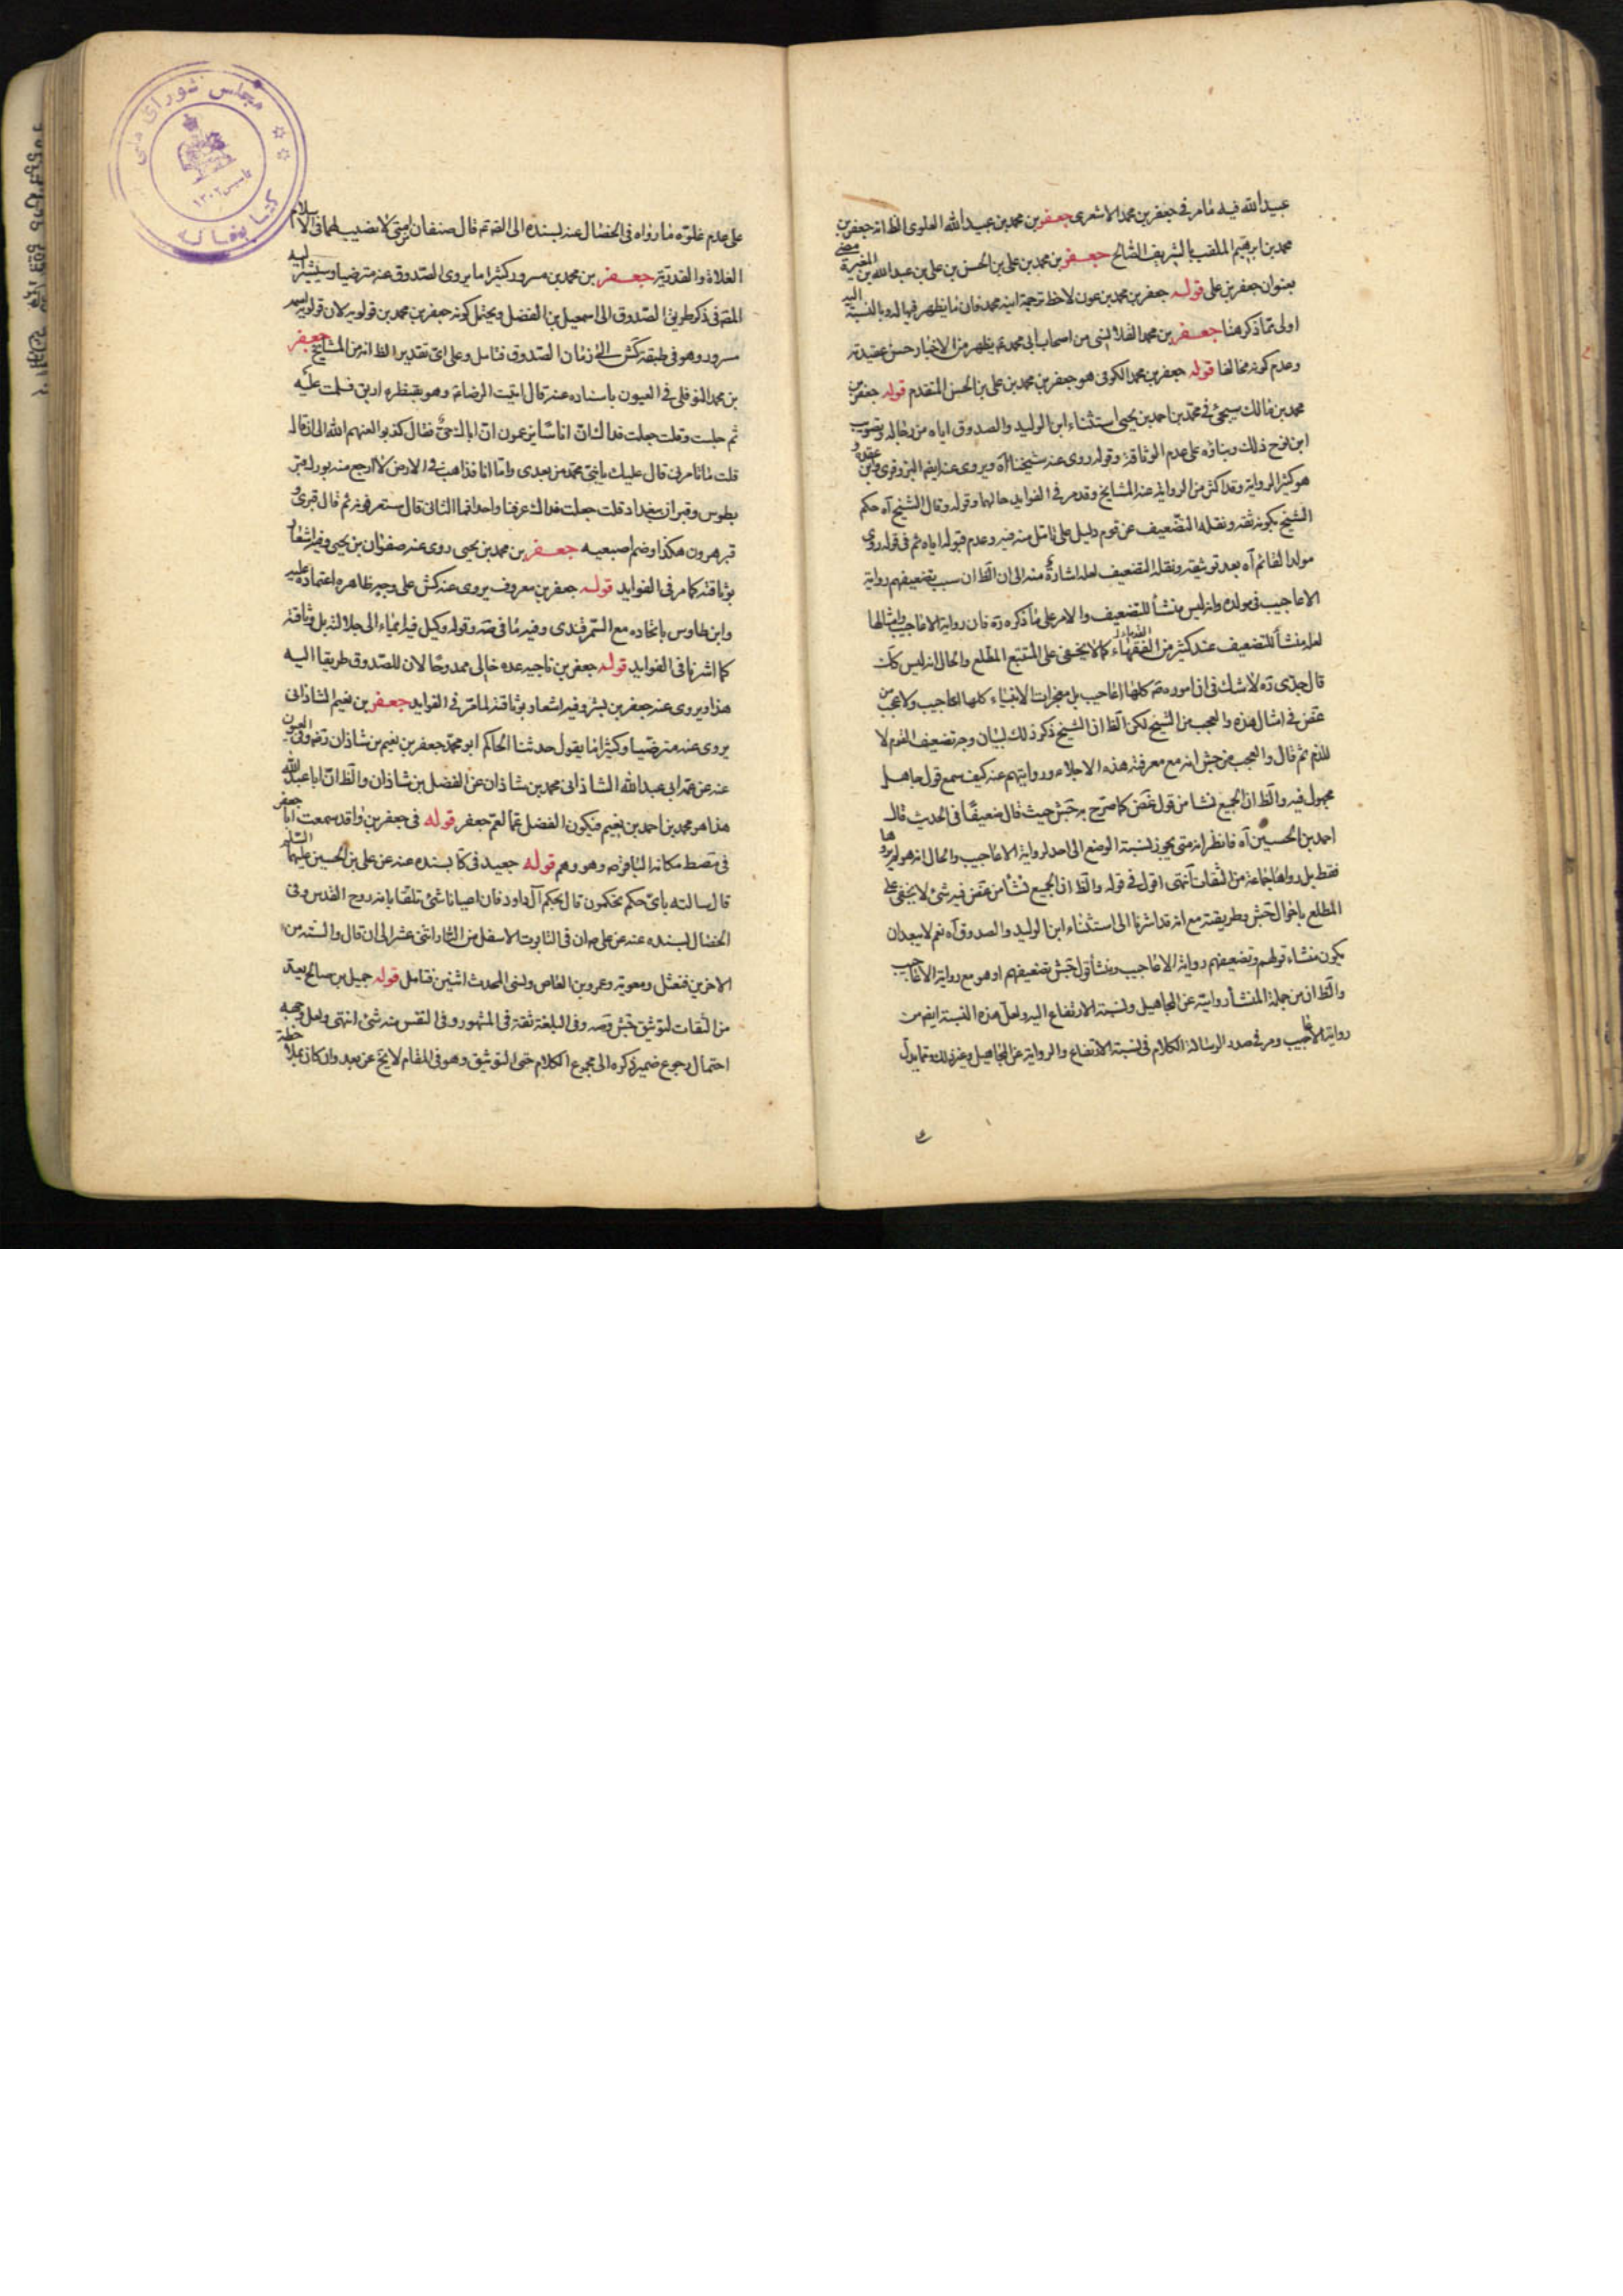 عبيد الله فيه ما مر في جعفر بن محمد الاشعرى جعفر بن محمد بن عبيد الله العلوى الظ انه جعفر بن
محمد بن ابرهيم الملقب بالشريف الصالح جعفر بن محمد بن على بن الحسن بن على بن عبد الله بن المغيرة مضى
بعنوان جعفر بن على قوله جعفر بن محمد بن عون لاحظ ترجمة ابنه محمد فان ما يظهر فيها له وبالنسبة اليه
اولى مما ذكر هنا جعفر بن محمد القلانسى من اصحاب ابى محمد ع يظهر من الاخبار حسن عقيدته
وعدم كونه مخالفا قوله جعفر بن محمد الكوفى هو جعفر بن محمد بن على بن الحسن المتقدم قوله جعفر بن
محمد بن مالك سيجئ فى محمد بن احمد بن يحيى استثناء ابن الوليد والصدوق اياه من رجاله وتصويب
ابن نوح ذلك وبناؤه على عدم الوثاقة وقوله روى عنه شيخنا آه ويروى عنه ايضا البزوفرى وابن عقدة و
هو كثير الرواية وقد اكثر من الرواية عنه المشايخ وقد مر فى الفوايد حالها وقوله وقال الشيخ آه حكم
الشيخ بكونه ثقة ونقله التضعيف عن قوم دليل على تامل منه فيه وعدم قبوله اياه ثم فى قوله روى
مولد القائم آه بعد توثيقه ونقله التضعيف لعله اشارة منه الى ان الظ ان سبب تضعيفهم رواية
الاعاجيب فى مولده وانه ليس منشأ للتضعيف والامر على ما ذكره ره فان رواية الاعاجيب وامثالها
لعله منشأ للتضعيف عند كثير من القدماء الفقهاء كما لا يخفى على المتتبع المطلع والحال انه ليس كك
قال جدى ره لا شك فى ان اموره ع كلها اعاجيب بل معجزات الانبياء كلها اعاجيب ولا عجب من
غض فى امثال هذه والعجب من الشيخ لكن الظ ان الشيخ ذكر ذلك لبيان وجه تضعيف القوم لا
للذم ثم قال والعجب من جش انه مع معرفته هذه الاجلاء وروايتهم عنه كيف سمع قول جاهل
مجهول فيه والظ ان الجميع نشا من قول غض كما صرح به جش حيث قال ضعيفا فى الحديث قال
احمد بن الحسين آه فانظر انه متى يجوز نسبة الوضع الى احد لرواية الاعاجيب والحال انه هو لم يروها
فقط بل رواها جماعة من الثقات انتهى اقول فى قوله والظ ان الجميع نشأ من غض فيه شئ لا يخفى على
المطلع باحوال جش وطريقته مع انه قد اشرنا الى استثناء ابن الوليد والصدوق آه نعم لا يبعد ان
يكون منشاء قولهم وتضعيفهم رواية الاعاجيب ومنشأ قول جش تضعيفهم او هو مع رواية الاعاجيب
والظ ان من جملة المنشأ روايته عن المجاهيل ونسبة الارتفاع اليه ولعل هذه النسبة ايضا من
رواية الاعاجيب ومر فى صدر الرسالة الكلام فى نسبة الارتفاع والرواية عن المجاهيل وغير ذلك ومما يدل
على عدم غلوه ما رواه فى الخصال عنه بسنده الى الصادق ع قال صنفان من امتى لا نصيب لهما فى الاسلام
الغلاة والقدرية جعفر بن محمد بن مسرور كثيرا ما يروى الصدوق عنه مترضيا ويشير اليه
المصه فى ذكر طريق الصدوق الى اسمعيل بن الفضل ويحتمل كونه جعفر بن محمد بن قولويه لان قولويه اسمه
مسرور وهو فى طبقة كش الى زمان الصدوق فتامل وعلى اى تقدير الظ انه من المشايخ جعفر
بن محمد النوفلى فى العيون باسناده عنه قال اتيت الرضا ع وهو بقنطرة اربق فسلمت عليه
ثم جلست وقلت جعلت فداك ان اناسا يزعمون ان اباك حى فقال كذبوا لعنهم الله الى ان قال
قلت ما تامرنى قال عليك بابنى محمد من بعدى واما انا فذاهب فى الارض لا ارجع منه بورك قبر
بطوس وقبران ببغداد قلت جعلت فداك عرفنا واحدا فما الثانى قال ستعرفونه ثم قال قبرى و
قبر هرون هكذا وضم اصبعيه جعفر بن محمد بن يحيى روى عنه صفوان بن يحيى وفيه اشعار
بوثاقته كما مر فى الفوايد قوله جعفر بن معروف يروى عنه كش على وجه ظاهره اعتماده عليه
وابن طاوس باتحاده مع السمرقندى وفيه ما فيه وقوله وكيل فيه ايماء الى جلالته بل وثاقته
كما اشرنا فى الفوايد قوله جعفر بن ناجيه عده خالى ممدوحا لان للصدوق طريقا اليه
هذا ويروى عنه جعفر بن بشير وفيه اشعار بوثاقته لما مر فى الفوايد جعفر بن نعيم الشاذانى
يروى عنه مترضيا وكثيرا ما يقول حدثنا الحاكم ابو محمد جعفر بن نعيم بن شاذان رضه وفى العيون
عنه عن عمه ابى عبد الله الشاذانى محمد بن شاذان عن الفضل بن شاذان والظ ان ابا عبد الله
هذا هو محمد بن احمد بن نعيم فيكون الفضل عما لعم جعفر قوله فى جعفر بن واقد سمعت ابا جعفر
فى مصط مكانه الباقر ع وهو وهم قوله جعيد فى كا بسنده عنه عن على بن الحسين عليهما السلم
قال سالته باى حكم تحكمون قال بحكم آل داود فان اعيانا شئ تلقانا به روح القدس وفى
الخصال بسنده عنه عن على ع ان فى التابوت الاسفل من النار اثنى عشر الى ان قال والستة من
الاخرين فنعثل ومعوية وعمرو بن العاص ونسى المحدث اثنين فتامل قوله جميل بن صالح يعد
من الثقات لتوثيق جش وصه وفى البلغة ثقة فى المشهور وفى النفس منه شئ انتهى ولعل وجهه
احتمال رجوع ضمير ذكره الى مجموع الكلام حتى التوثيق وهو فى المقام لا يخ عن بعد وان كان بملاحظة
مجلس شوراى ملى
تاسيس ۱۳۰۲
كتابخانه